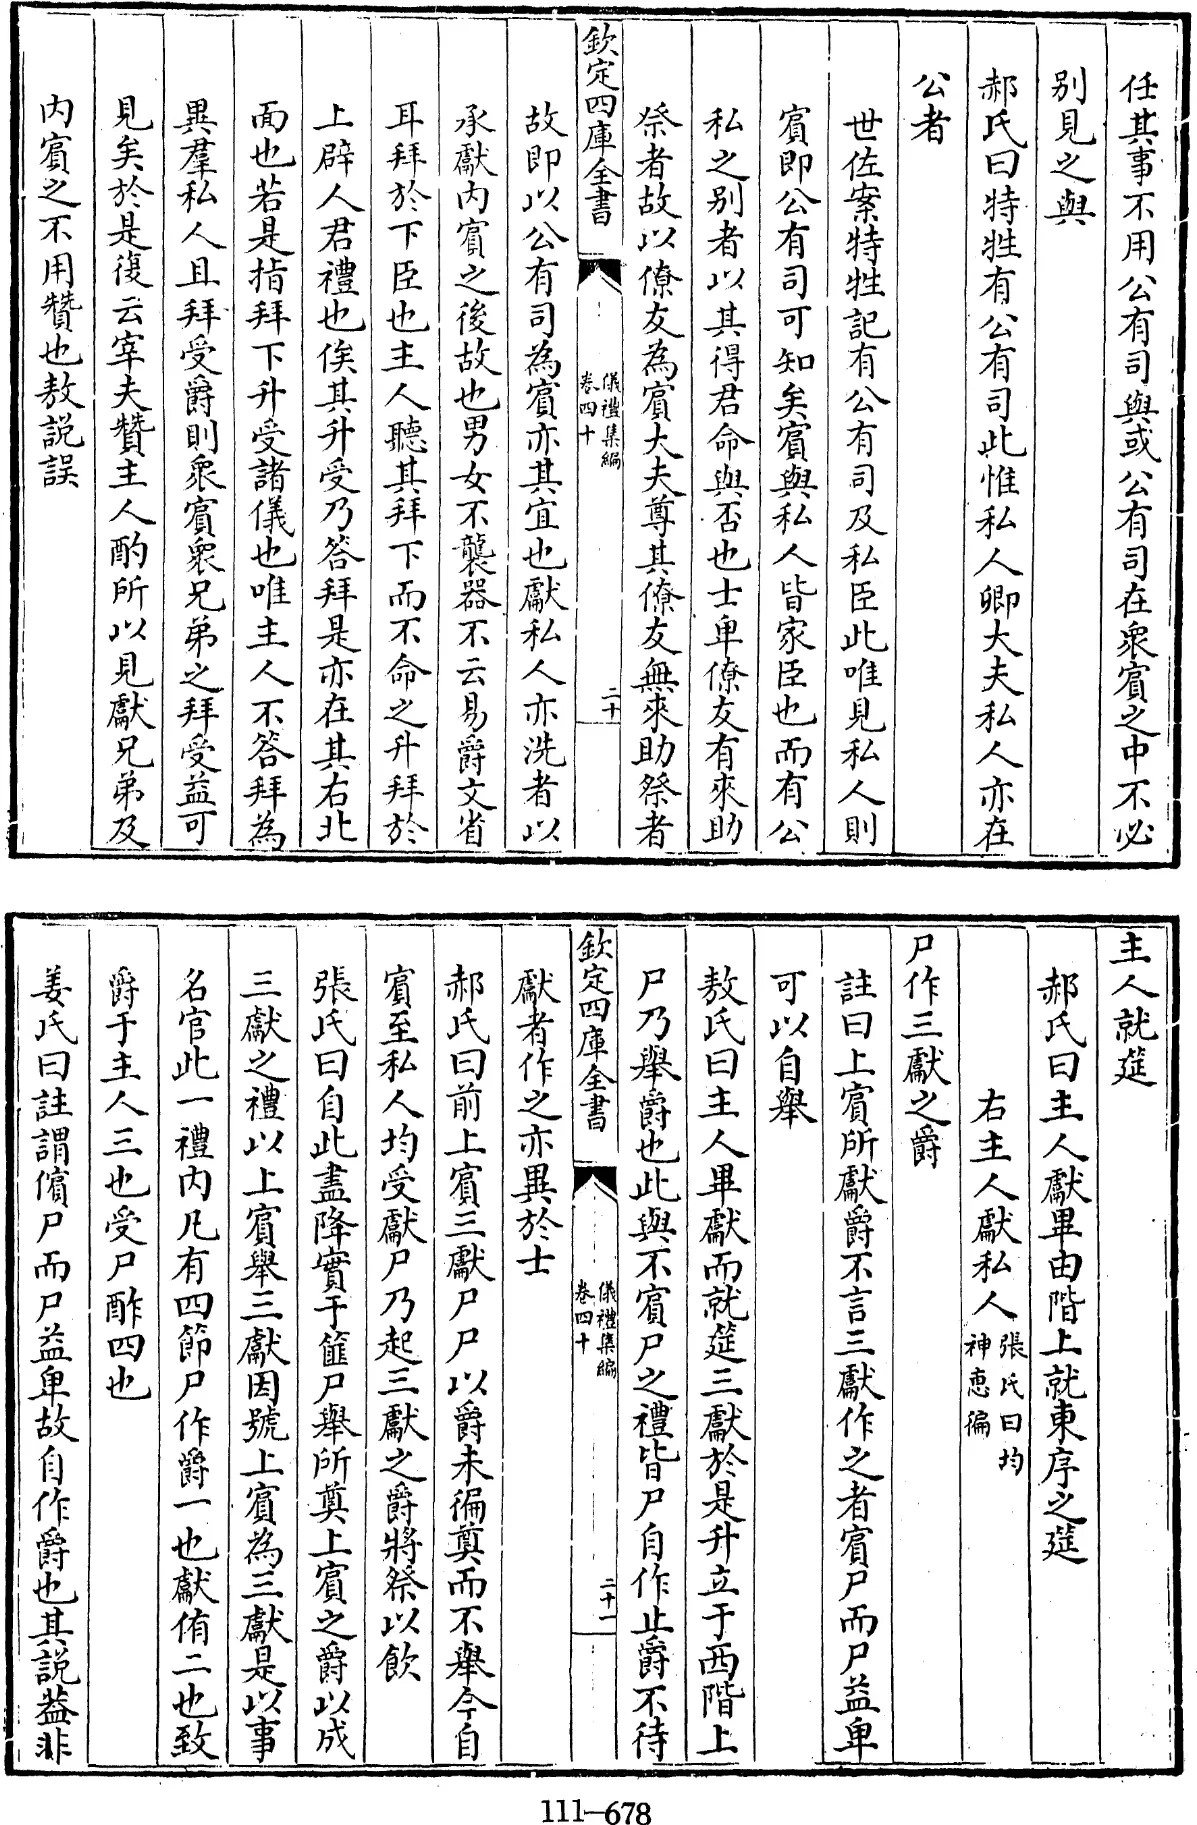 任其事不用公有司與或公有司在衆賓之中不必
别見之與
郝氏曰特牲有公有司此惟私人卿大夫私人亦在
公者
世佐案特牲記有公有司及私臣此唯見私人則
賓即公有司可知矣賓與私人皆家臣也而有公
私之别者以其得君命與否也士卑僚友有來助
祭者故以僚友為賓大夫尊其僚友無來助祭者
欽定四庫全書
儀禮集編
卷四十
二十
故即以公有司為賓亦其宜也獻私人亦洗者以
承獻内賓之後故也男女不襲器不云易爵文省
耳拜於下臣也主人聽其拜下而不命之升拜於
上辟人君禮也俟其升受乃答拜是亦在其右北
面也若是指拜下升受諸儀也唯主人不答拜為
異羣私人且拜受爵則衆賓衆兄弟之拜受益可
見矣於是復云宰夫贊主人酌所以見獻兄弟及
内賓之不用贊也敖說誤
主人就筵
郝氏曰主人獻畢由階上就東序之筵
右主人獻私人
張氏曰均
神惠徧
尸作三獻之爵
註曰上賓所獻爵不言三獻作之者賓尸而尸益卑
可以自舉
敖氏曰主人畢獻而就筵三獻於是升立于西階上
尸乃舉爵也此與不賓尸之禮皆尸自作止爵不待
欽定四庫全書
儀禮集編
卷四十
二十一
獻者作之亦異於士
郝氏曰前上賓三獻尸尸以爵未徧奠而不舉今自
賓至私人均受獻尸乃起三獻之爵將祭以飲
張氏曰自此盡降實于篚尸舉所奠上賓之爵以成
三獻之禮以上賓舉三獻因號上賓為三獻是以事
名官此一禮内凡有四節尸作爵一也獻侑二也致
爵于主人三也受尸酢四也
姜氏曰註謂儐尸而尸益卑故自作爵也其說葢非
111-678